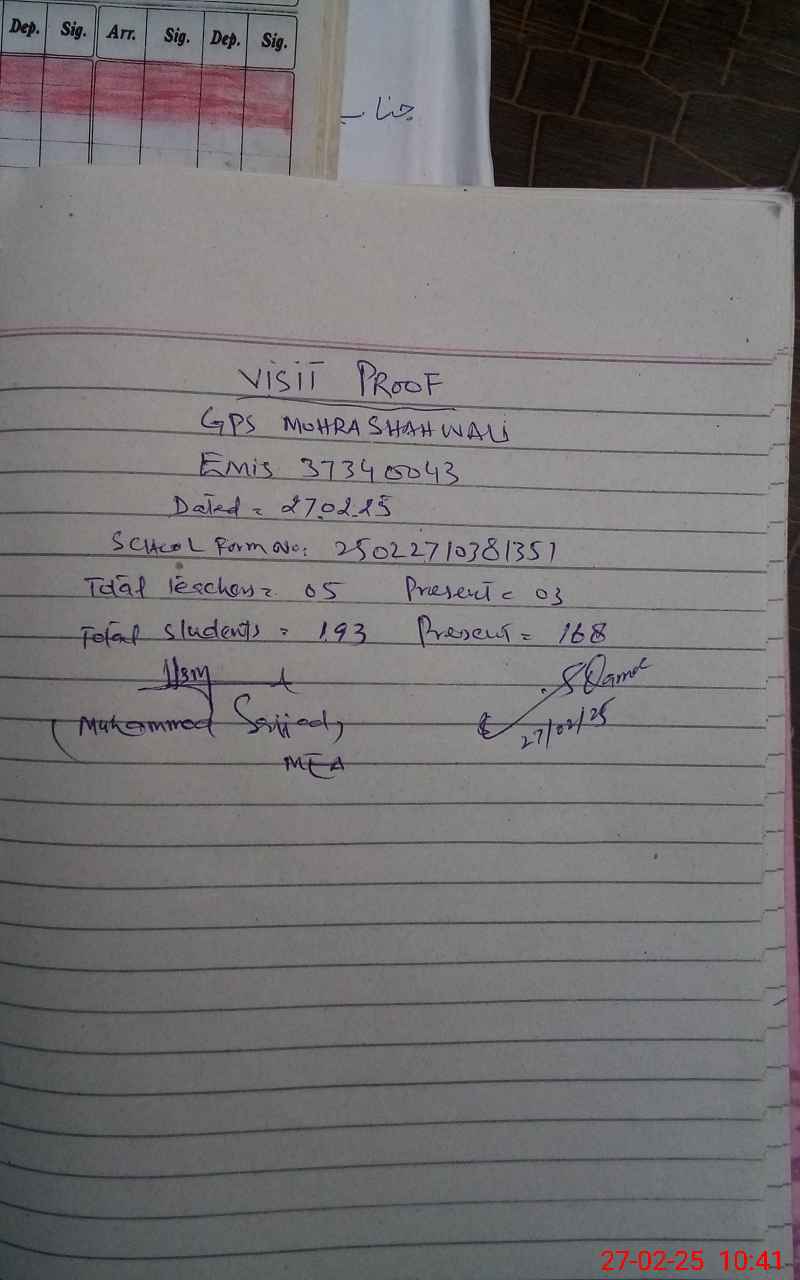 Dep. Sig. Arr. Sig. Dep. Sig.
جناب
VISIT PROOF
GPS MOHRA SHAH WALI
EMIS 37340043
Dated = 27.02.25
SCHOOL Form No: 25022710381351
Total Teachers = 05 Present = 03
Total Students = 193 Present = 168
Muhammad Sajjad,
27/02/25
MEA
27-02-25 10:41